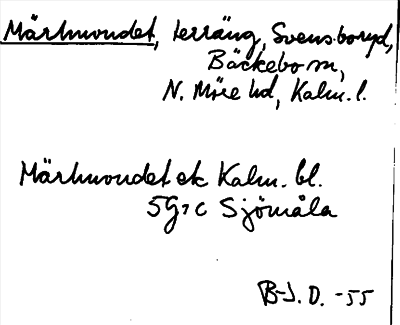 Märhundet, terräng, Svensboryd,
Bäckebo sn,
N. Möre hd, Kalm. l.
Märhundet ek Kalm. bl.
5G7c Sjömåla
B-J. D. -55